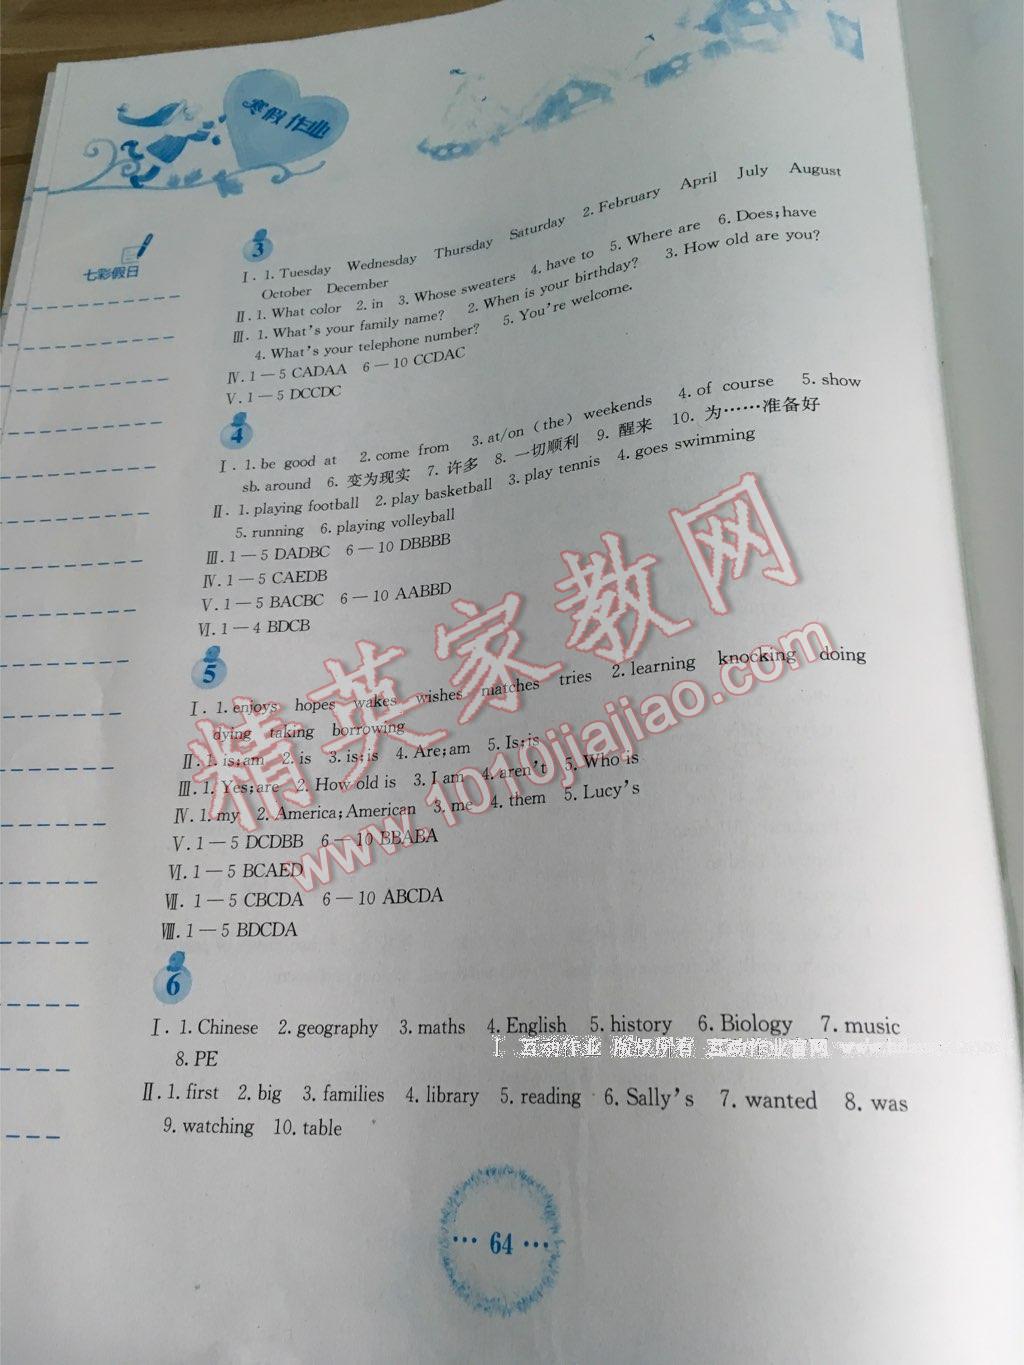 寒假作业
七彩假日
3
Ⅰ. 1. Tuesday Wednesday Thursday Saturday 2. February April July August
October December
Ⅱ. 1. What color 2. in 3. Whose sweaters 4. have to 5. Where are 6. Does;have
Ⅲ. 1. What's your family name? 2. When is your birthday? 3. How old are you?
4. What's your telephone number? 5. You're welcome.
Ⅳ. 1—5 CADAA 6—10 CCDAC
Ⅴ. 1—5 DCCDC
4
Ⅰ. 1. be good at 2. come from 3. at/on (the) weekends 4. of course 5. show
sb. around 6. 变为现实 7. 许多 8. 一切顺利 9. 醒来 10. 为……准备好
Ⅱ. 1. playing football 2. play basketball 3. play tennis 4. goes swimming
5. running 6. playing volleyball
Ⅲ. 1—5 DADBC 6—10 DBBBB
Ⅳ. 1—5 CAEDB
Ⅴ. 1—5 BACBC 6—10 AABBD
Ⅵ. 1—4 BDCB
5
Ⅰ. 1. enjoys hopes wakes wishes matches tries 2. learning knocking doing
dying taking borrowing
Ⅱ. 1. is;am 2. is 3. is;is 4. Are;am 5. Is;is
Ⅲ. 1. Yes;are 2. How old is 3. I am 4. aren't 5. Who is
Ⅳ. 1. my 2. America;American 3. me 4. them 5. Lucy's
Ⅴ. 1—5 DCDBB 6—10 BBABA
Ⅵ. 1—5 BCAED
Ⅶ. 1—5 CBCDA 6—10 ABCDA
Ⅷ. 1—5 BDCDA
精英家教网
www.1010jiajiao.com
6
Ⅰ. 1. Chinese 2. geography 3. maths 4. English 5. history 6. Biology 7. music
8. PE
Ⅱ. 1. first 2. big 3. families 4. library 5. reading 6. Sally's 7. wanted 8. was
9. watching 10. table
··· 64 ···